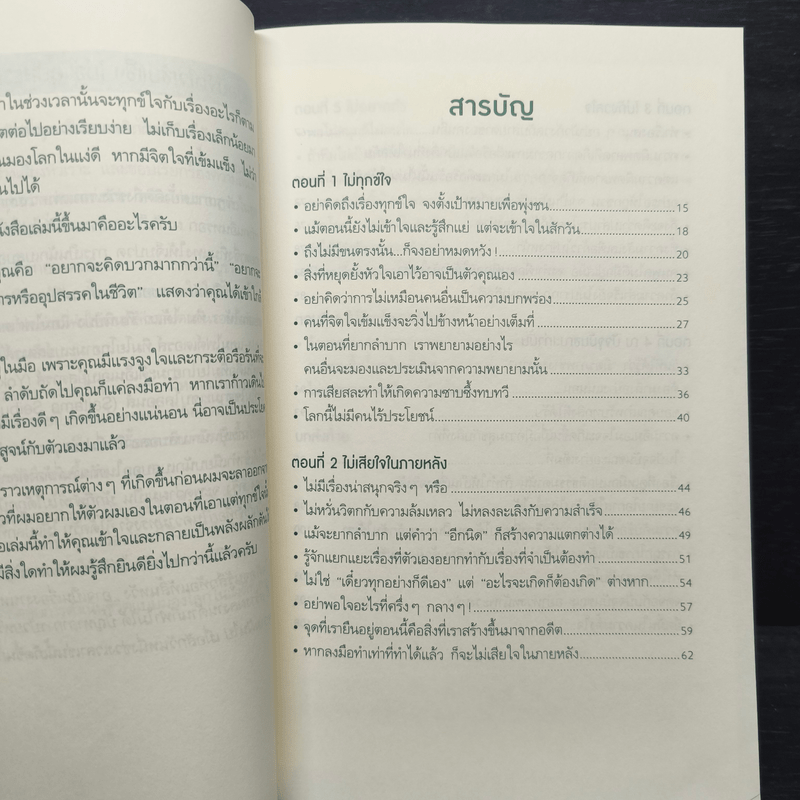 าในช่วงเวลานั้นจะทุกข์ใจกับเรื่องอะไรก็ตาม
ตต่อไปอย่างเรียบง่าย ไม่เก็บเรื่องเล็กน้อยมา
นมองโลกในแง่ดี หากมีจิตใจที่เข้มแข็ง ไม่ว่า
นไปได้
งสือเล่มนี้ขึ้นมาคืออะไรครับ
ุณคือ “อยากจะคิดบวกมากกว่านี้” “อยากจะ
ารหรืออุปสรรคในชีวิต” แสดงว่าคุณได้เข้าใกล้
ในมือ เพราะคุณมีแรงจูงใจและกระตือรือร้นที่จะ
ลำดับถัดไปคุณก็แค่ลงมือทำ หากเราก้าวเดินไป
มีเรื่องดีๆ เกิดขึ้นอย่างแน่นอน นี่อาจเป็นประโยค
สูจน์กับตัวเองมาแล้ว
ราวเหตุการณ์ต่างๆ ที่เกิดขึ้นก่อนผมจะลาออกจาก
วที่ผมอยากให้ตัวผมเองในตอนที่เอาแต่ทุกข์ใจ
อเล่มนี้ทำให้คุณเข้าใจและกลายเป็นพลังผลักดัน
มีสิ่งใดทำให้ผมรู้สึกยินดียิ่งไปกว่านี้แล้วครับ
สารบัญ
ตอนที่ 1 ไม่ทุกข์ใจ
• อย่าคิดถึงเรื่องทุกข์ใจ จงตั้งเป้าหมายเพื่อพุ่งชน 15
• แม้ตอนนี้ยังไม่เข้าใจและรู้สึกแย่ แต่จะเข้าใจในสักวัน 18
• ถึงไม่มีขนตรงนั้น...ก็จงอย่าหมดหวัง! 20
• สิ่งที่หยุดยั้งหัวใจเอาไว้อาจเป็นตัวคุณเอง 23
• อย่าคิดว่าการไม่เหมือนคนอื่นเป็นความบกพร่อง 25
• คนที่จิตใจเข้มแข็งจะวิ่งไปข้างหน้าอย่างเต็มที่ 27
• ในตอนที่ยากลำบาก เราพยายามอย่างไร
คนอื่นจะมองและประเมินจากความพยายามนั้น 33
• การเสียสละทำให้เกิดความซาบซึ้งทบทวี 36
• โลกนี้ไม่มีคนไร้ประโยชน์ 40
ตอนที่ 2 ไม่เสียใจในภายหลัง
• ไม่มีเรื่องน่าสนุกจริงๆ หรือ 44
• ไม่หวั่นวิตกกับความล้มเหลว ไม่หลงละเลิงกับความสำเร็จ 46
• แม้จะยากลำบาก แต่คำว่า “อีกนิด” ก็สร้างความแตกต่างได้ 49
• รู้จักแยกแยะเรื่องที่ตัวเองอยากทำกับเรื่องที่จำเป็นต้องทำ 51
• ไม่ใช่ “เดี๋ยวทุกอย่างก็ดีเอง” แต่ “อะไรจะเกิดก็ต้องเกิด” ต่างหาก 54
• อย่าพอใจอะไรที่ครึ่งๆ กลางๆ! 57
• จุดที่เรายืนอยู่ตอนนี้คือสิ่งที่เราสร้างขึ้นมาจากอดีต 59
• หากลงมือทำเท่าที่ทำได้แล้ว ก็จะไม่เสียใจในภายหลัง 62